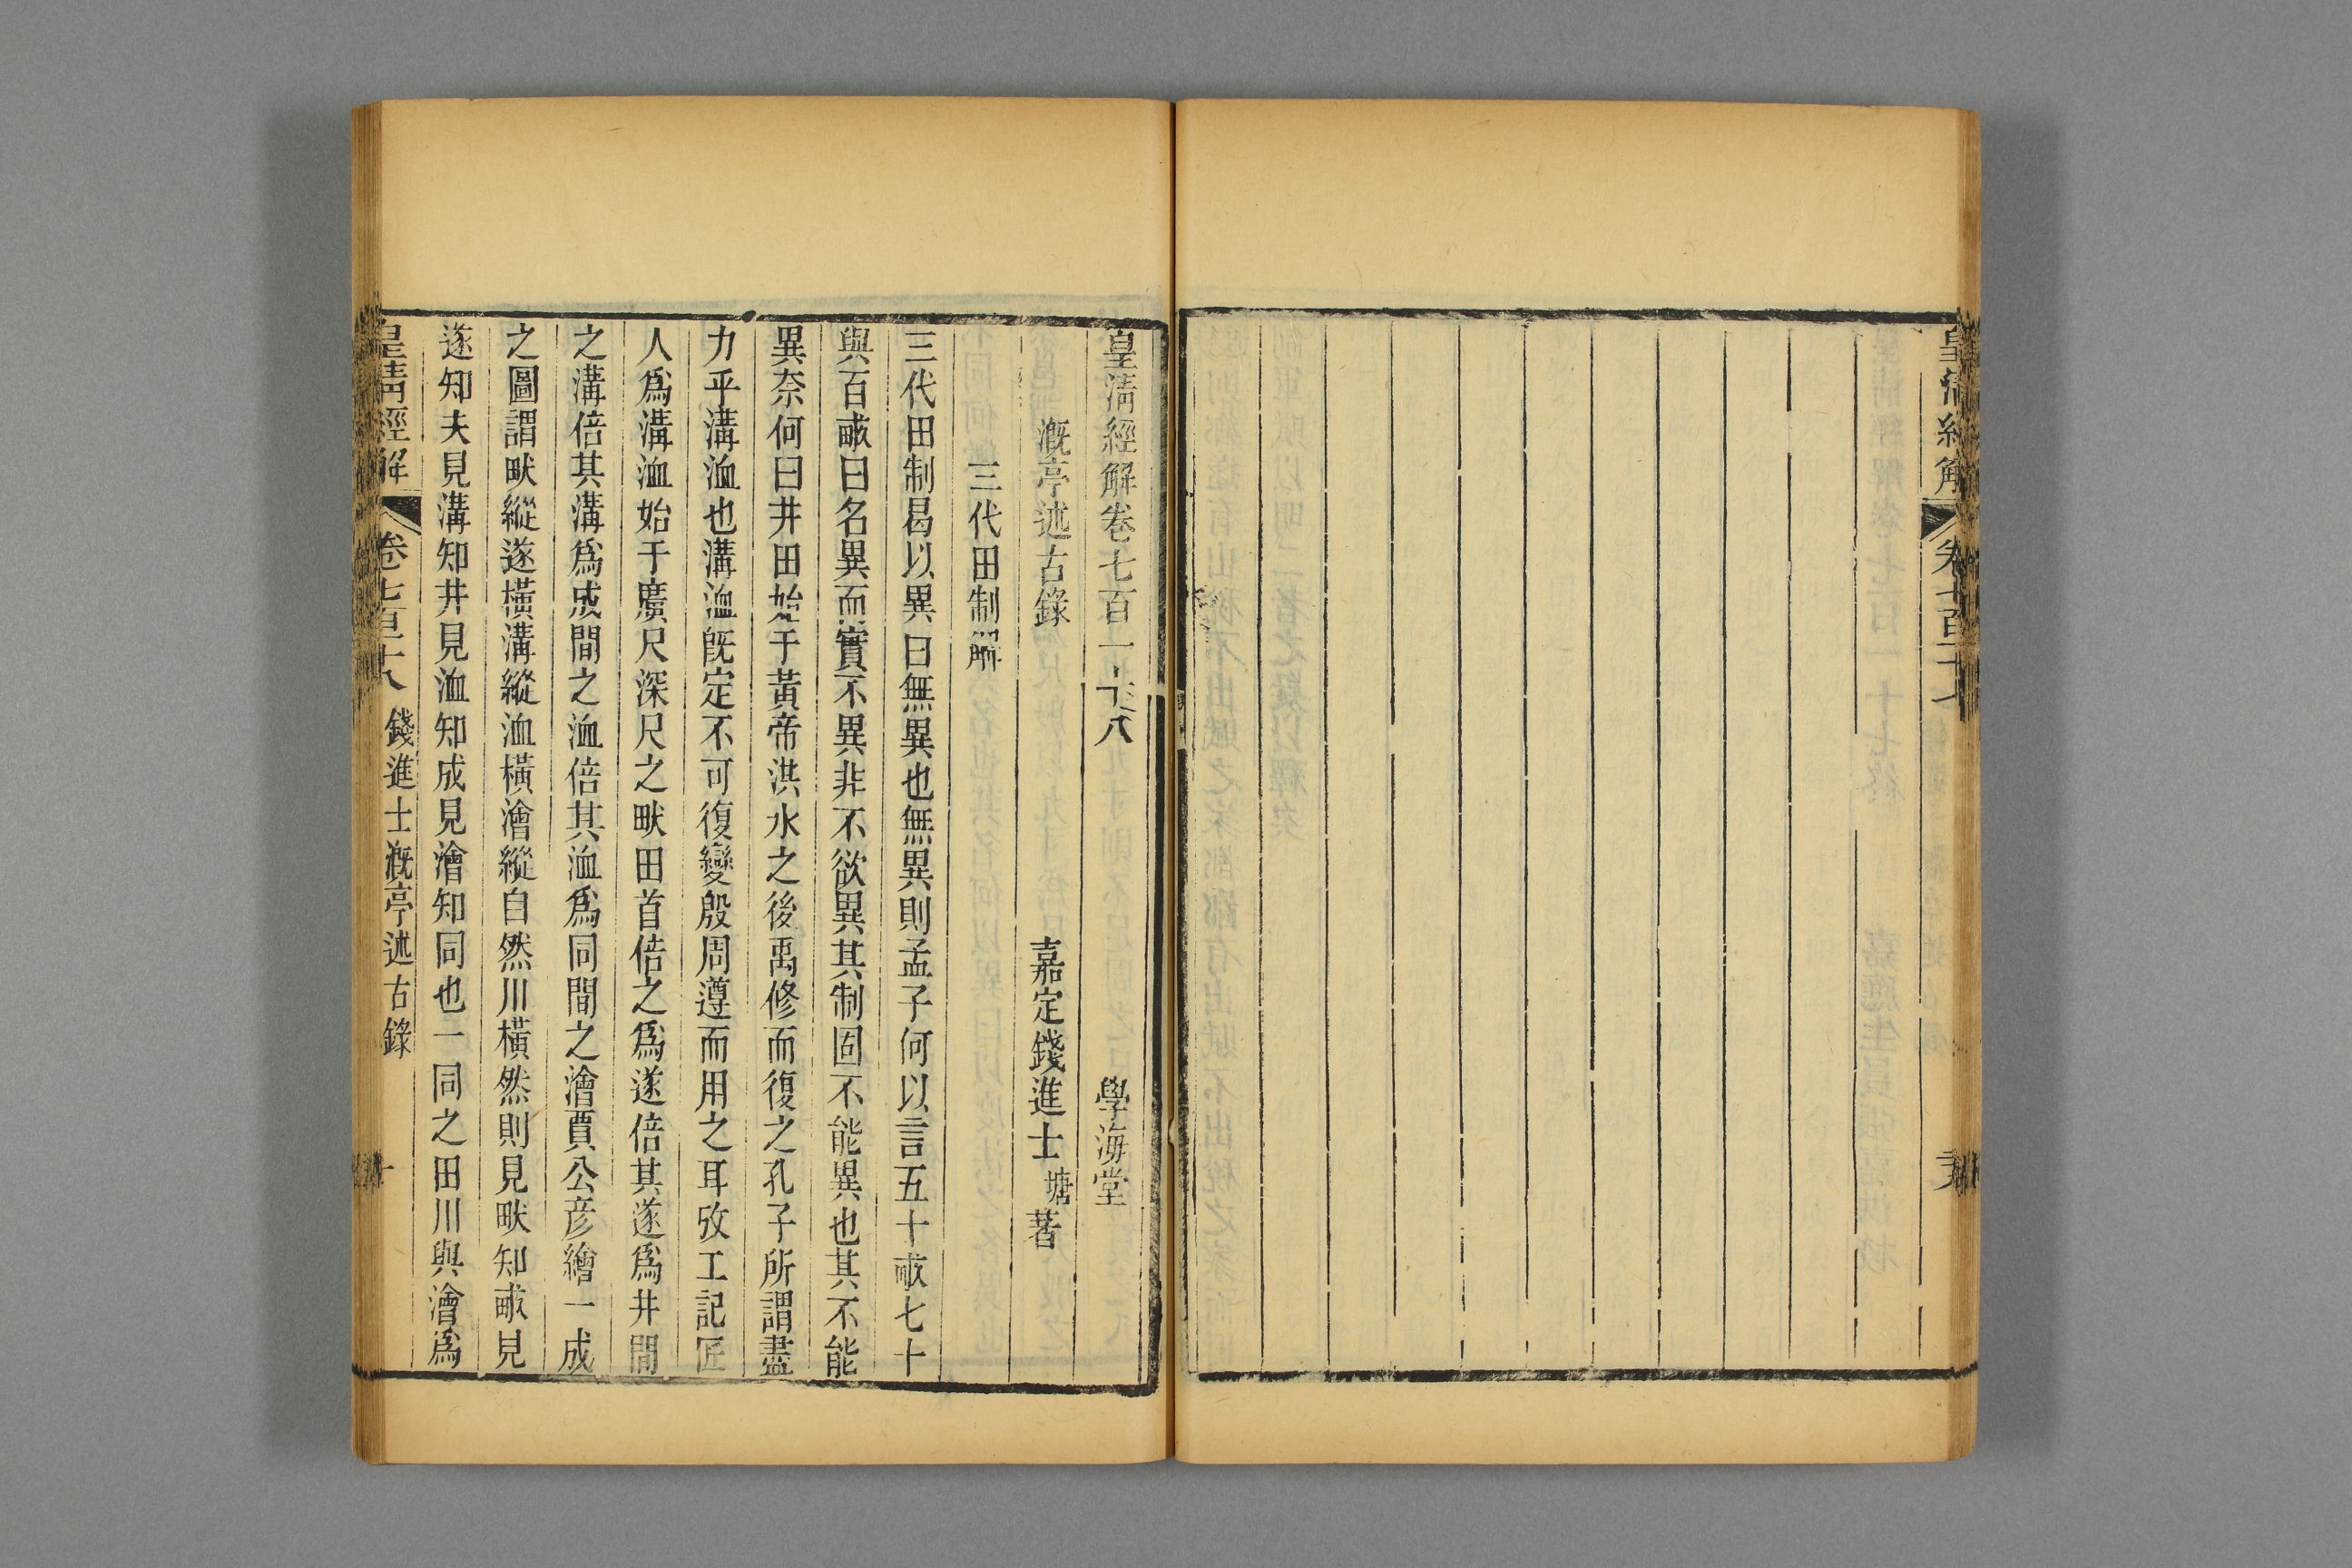 皇清經解
卷七百十七
皇清經解卷七百一十八
學海堂
溉亭述古錄
嘉定錢進士塘著
三代田制解
三代田制曷以異曰無異也無異則孟子何以言五十畝七十
與百畝曰名異而實不異非不欲異其制固不能異也其不能
異奈何曰井田始于黃帝洪水之後禹修而復之孔子所謂盡
力乎溝洫也溝洫旣定不可復變殷周遵而用之耳攷工記匠
人爲溝洫始于廣尺深尺之畎田首倍之爲遂倍其遂爲井間
之溝倍其溝爲成間之洫倍其洫爲同間之澮賈公彦繪一成
之圖謂畎縱遂橫溝縱洫橫澮縱自然川橫然則見畎知畝見
遂知夫見溝知井見洫知成見澮知同也一同之田川與澮爲
皇清經解
卷七百十八
錢進士溉亭述古錄
一